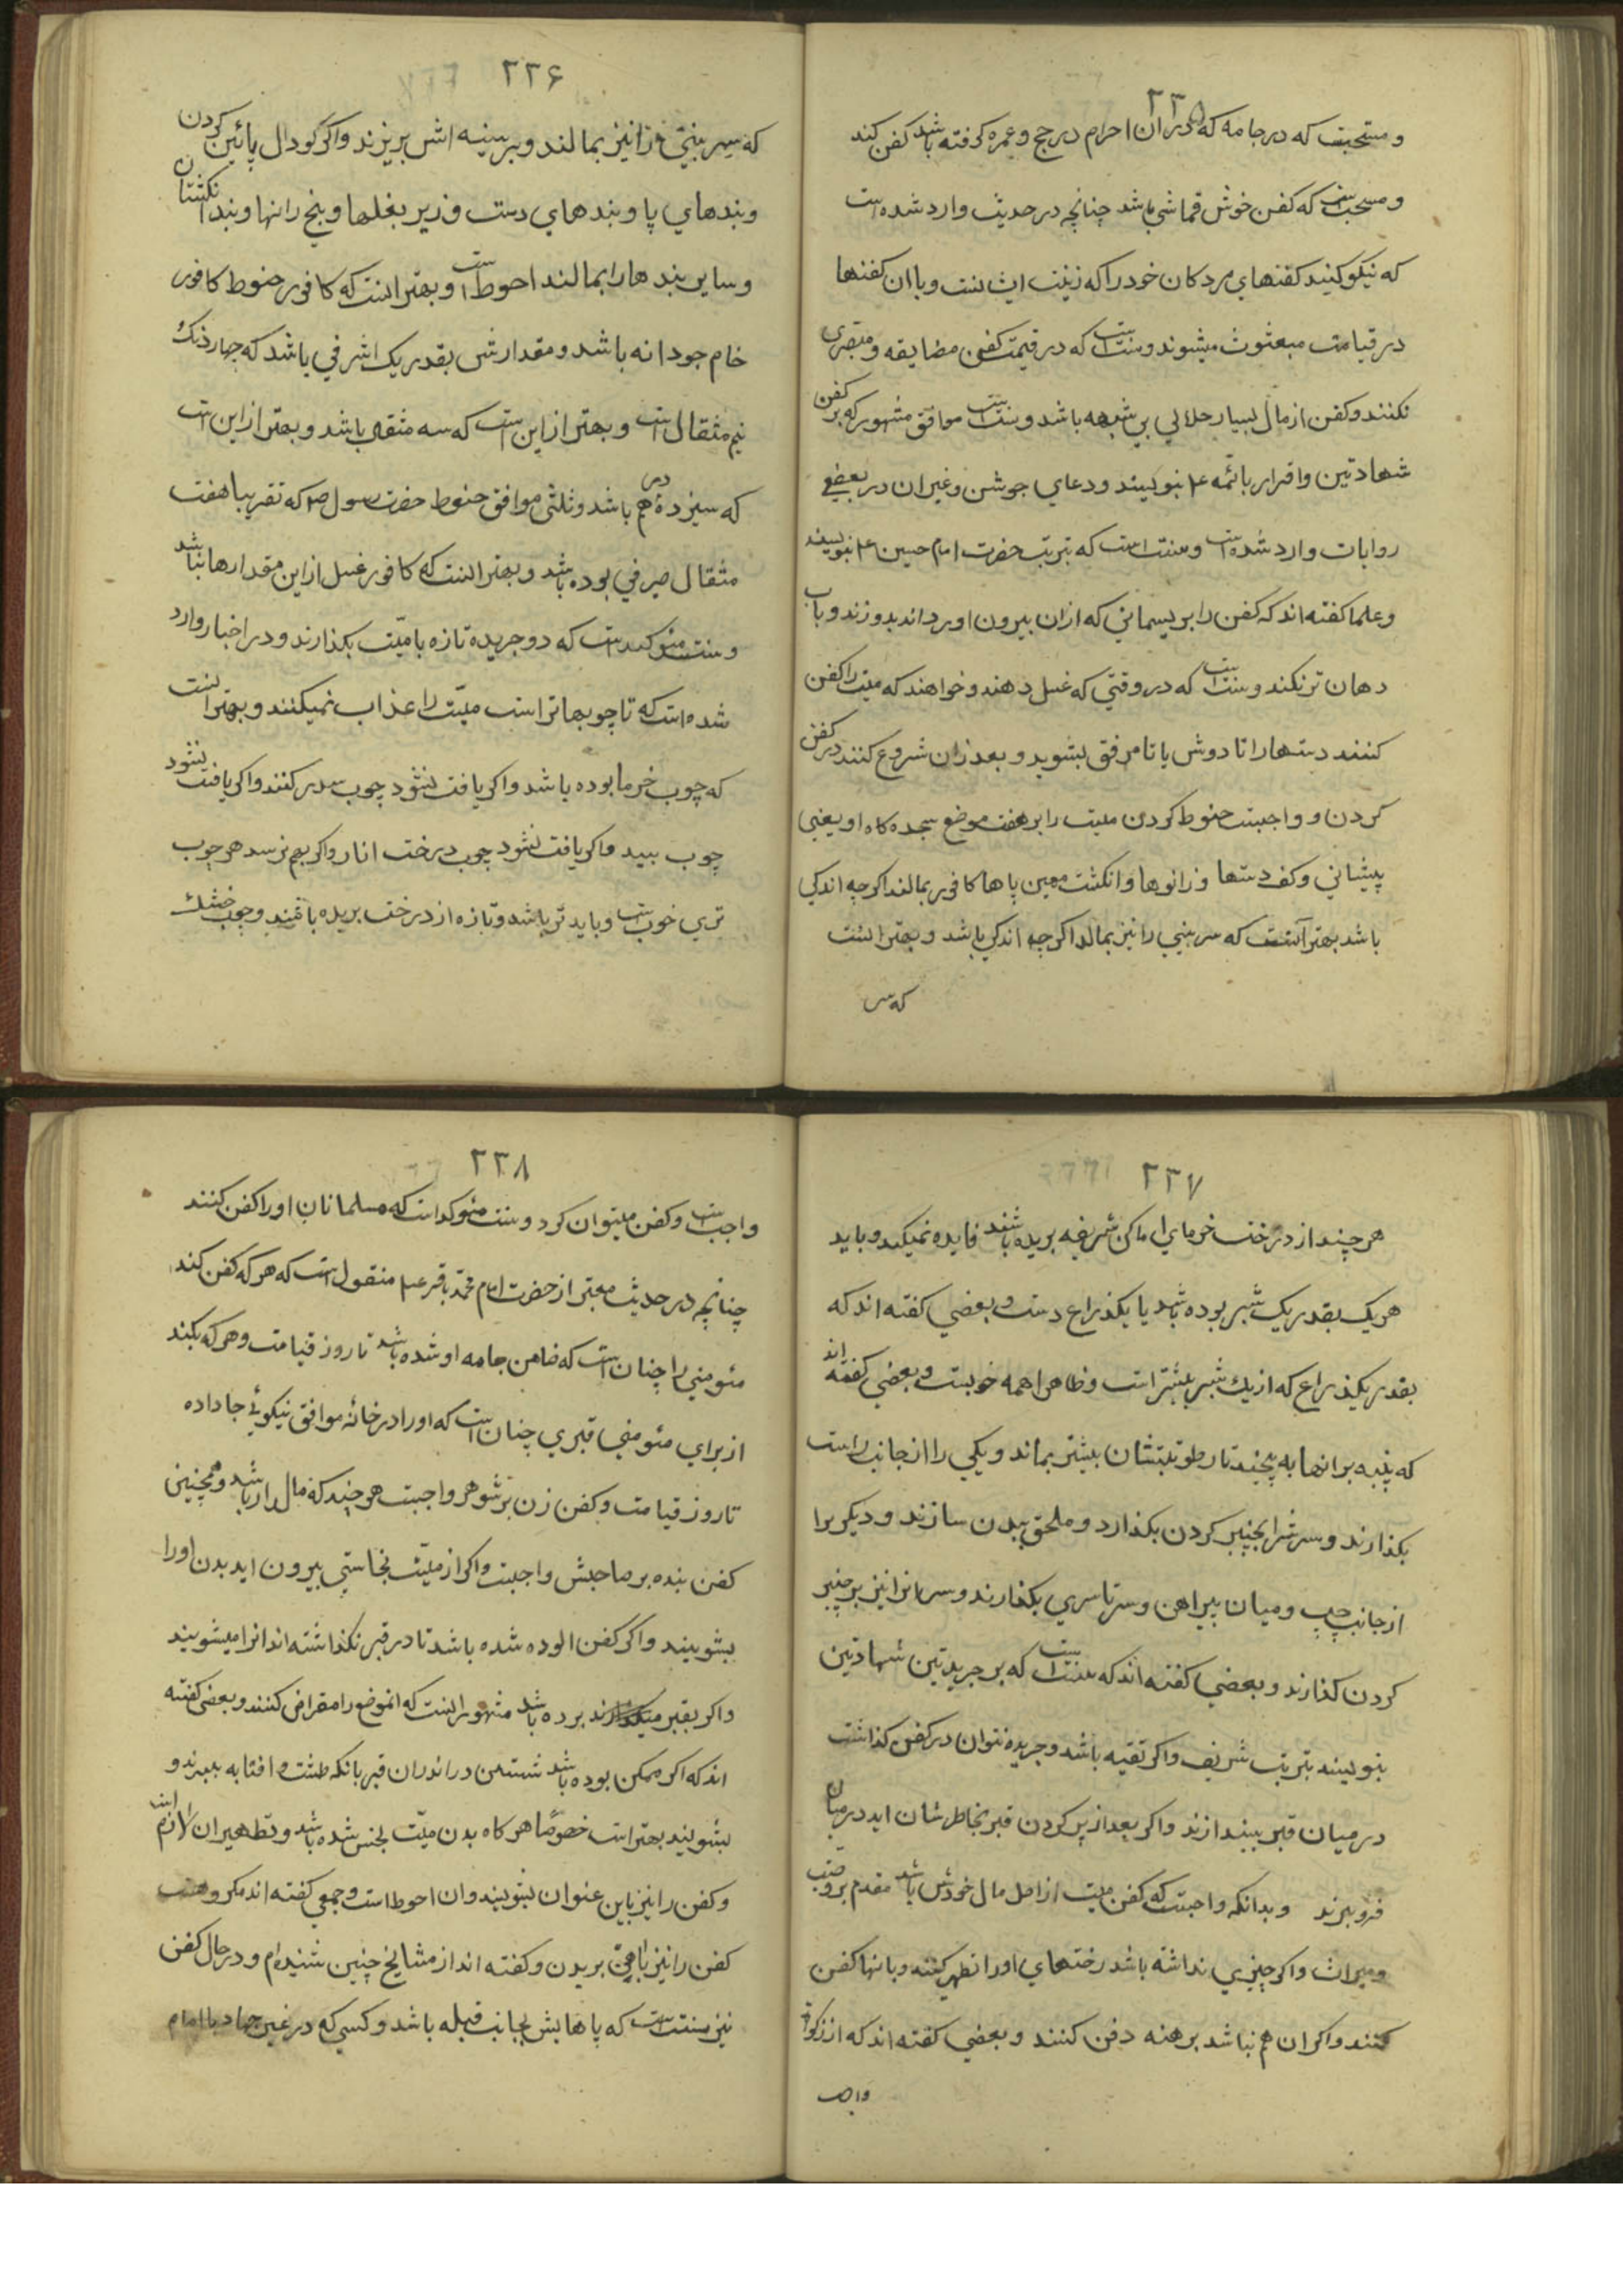 ۲۲۵
و مستحبست که در جامه که در ان احرام در حج و عمره کرفته باشد کفن کند
و مستحبست که کفن خوش قماشی باشد چنانچه در حدیث وارد شده است
که نیکو کنید کفنهای مردکان خود را که زینت ایشانست و با ان کفنها
در قیامت مبعوث میشوند و سنت است که در قیمت کفن مضایقه و
نکنند و کفن از مال بسیار حلالی بی شبهه باشد و سنت است موافق مشهور که بر کفن
شهادتین و اقرار بائمه ع بنویسند و دعای جوشن و غیر ان در بعضی
روایات وارد شده است و سنت است که بتربت حضرت امام حسین ع بنویسند
و علما کفته اند که کفن را بریسمانی که از ان بیرون اورد اند بدوزند و باب
دهان تر نکند و سنت است که در وقتی که غسل دهند و خواهند که میت را کفن
کنند دستها را تا دوش یا تا مرفق بشوید و بعد زان شروع کنند در کفن
کردن و واجبست حنوط کردن میت را بر هفت موضع سجده کاه او یعنی
پیشانی و کف دستها و زانوها و انکشت مهین پاها کافور بمالند اکر چه اندکی
باشد بهتر آنست که سر بینی را نیز بمالد اکر چه اندکی باشد و بهتر انست
که سر
۲۲۶
که سر بینی را نیز بمالند و بر سینه اش بریزند و اکر کودال پائین کردن
و بندهای پا و بندهای دست و زیر بغلها و بیخ رانها و بند انکشتان
و سایر بندها را بمالند احوط است و بهتر انست که کافور حنوط کافور
خام جودانه باشد و مقدارش بقدر یک اشرفی باشد که چهار دنک
نیم مثقال است و بهتر از این است که سه مثقال باشد و بهتر از این است
که سیزده درهم باشد و ثلثی موافق حنوط حضرت رسول ص که تقریبا هفت
مثقال صیرفی بوده باشد و بهتر انست که کافور غسل از این مقدارها نباشد
و سنت مئوکد است که دو جریده تازه با میّت بکذارند و در اخبار وارد
شده است که تا چوبها تر است میّت را عذاب نمیکنند و بهتر انست
که چوب خرما بوده باشد و اکر یافت نشود چوب سدر کنند و اکر یافت نشود
چوب بید و اکر یافت نشود چوب درخت انار و اکر بهم نرسد هر چوب
تری خوب است و باید تر باشد و تازه از درخت بریده باشند و چوب خشک
۲۲۷
هر چند از درخت خرمای اماکن شریفه بریده باشند فایده نمیکند و باید
هر یک بقدر یک شبر بوده باشد یا یکذراع دست و بعضی کفته اند که
بقدر یکذراع که از یک شبر بیشتر است و ظاهرا همه خوبست و بعضی کفته اند
که پنبه بر انها به پیچند تا رطوبتشان بیشتر بماند و یکی را از جانب راست
بکذارند و سرش را بچنبر کردن بکذارد و ملحق ببدن سازند و دیکر یرا
از جانب چپ و میان پیراهن و سرتاسری بکذارند و سر انرا نیز بر چنبر
کردن کذارند و بعضی کفته اند که سنت است که بر جریدتین شهادتین
بنویسند بتربت شریف و اکر تقیه باشد و جریده نتوان در کفن کذاشت
در میان قبر بیندازند و اکر بعد از پر کردن قبر بخاطرشان اید در میان
فرو برند و بدانکه واجبست که کفن میت از اصل مال خودش باشد مقدم بر وصیت
و میراث و اکر چیزی نداشته باشد رختهای اورا تطهیر کنند و بانها کفن
کنند و اکر ان هم نباشد برهنه دفن کنند و بعضی کفته اند که از زکوة
واجب
۲۲۸
واجب است و کفن میتوان کرد و سنت مئوکد است که مسلمانان اورا کفن کنند
چنانچه در حدیث معتبر از حضرت امام محمّد باقر ع منقول است که هر که کفن کند
مئومنی را چنان است که ضامن جامه او شده باشد تا روز قیامت و هر که بکند
از برای مئومنی قبری چنان است که اورا در خانه موافق نیکوئی جا داده
تا روز قیامت و کفن زن بر شوهر واجبست هر چند که مال دار باشد و همچنین
کفن بنده بر صاحبش واجبست و اکر از میّت نجاستی بیرون اید بدن اورا
بشویند و اکر کفن الوده شده باشد تا در قبر نکذاشته اند انرا میشویند
و اکر بقبر برده باشد مشهور انست که انموضع را مقراض کنند و بعضی کفته
اند که اکر ممکن بوده باشد شستن در اندران قبر بانکه طشت و افتابه ببرند و
بشویند بهتر است خصوصًا هر کاه بدن میّت نجس شده باشد و تطهیر ان لازم است
و کفن را نیز باین عنوان بشویند و ان احوط است و جمعی کفته اند مکروهست
کفن را نیز باهن بریدن و کفته اند از مشایخ چنین شنیده ام و در حال کفن
نیز سنت است که پاهایش بجانب قبله باشد و کسی که در غیر جهاد با امام